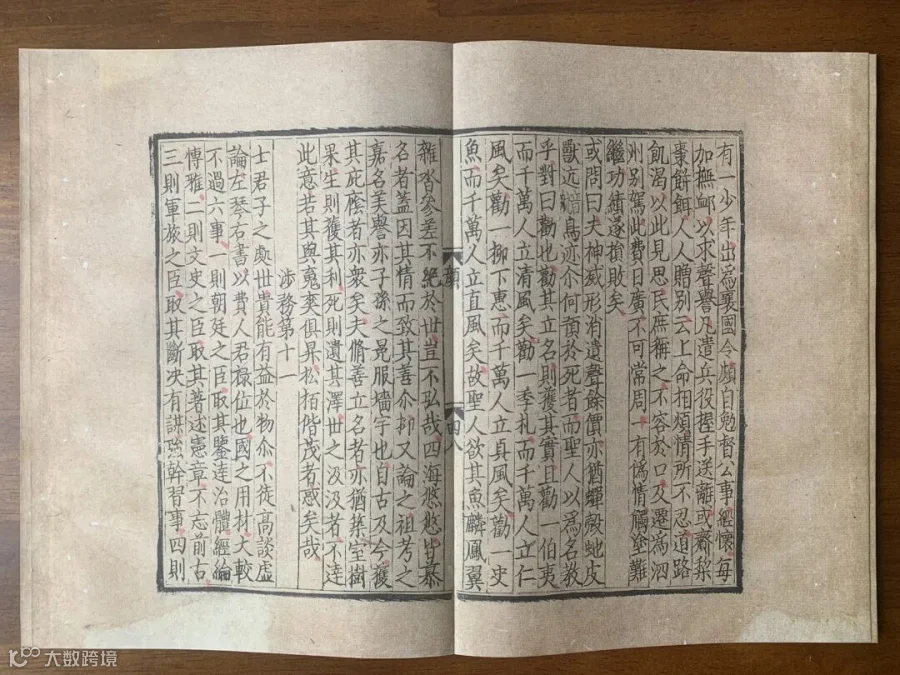 有一少年出爲襄國令頗自勉督公事經懷每
加撫䘏以求聲譽凡遣兵役握手送離或齎梨
棗餅餌人人贈別云上命相煩情所不忍道路
飢渴以此見思民庶稱之不容於口及遷爲泗
州別駕此費日廣不可常周一有僞情觸塗難
繼功績遂損敗矣
或問曰夫神滅形消遺聲餘價亦猶蟬殼虵皮
獸迒鳥迹尒何預於死者而聖人以爲名教
乎對曰勸也勸其立名則獲其實且勸一伯夷
而千萬人立清風矣勸一季札而千萬人立仁
風矣勸一柳下惠而千萬人立貞風矣勸一史
魚而千萬人立直風矣故聖人欲其魚鱗鳳翼
顏
雜沓參差不絕於世豈不弘哉四海悠悠皆慕
名者蓋因其情而致其善尒抑又論之祖考之
嘉名美譽亦子孫之冕服墻宇也自古及今獲
其庇廕者亦衆矣夫脩善立名者亦猶築室樹
果生則獲其利死則遺其澤世之汲汲者不達
此意若其與䰟爽俱昇松栢偕茂者惑矣哉
涉務第十一
士君子之處世貴能有益於物尒不徒高談虛
論左琴右書以費人君祿位也國之用材大較
不過六事一則朝廷之臣取其鑒達治體經綸
愽雅二則文史之臣取其著述憲章不忘前古
三則軍旅之臣取其斷決有謀強幹習事四則
大数跨境